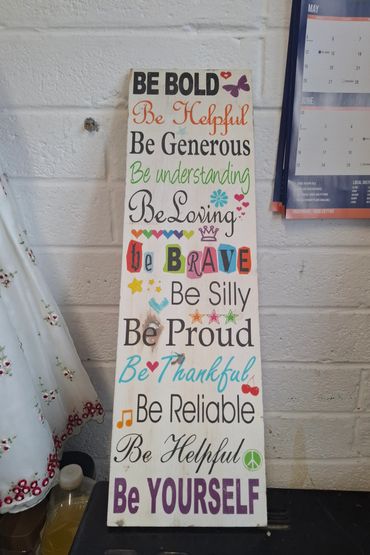 BE BOLD
Be Helpful
Be Generous
Be understanding
Be Loving
be BRAVE
Be Silly
Be Proud
Be Thankful
Be Reliable
Be Helpful
Be YOURSELF
MAY